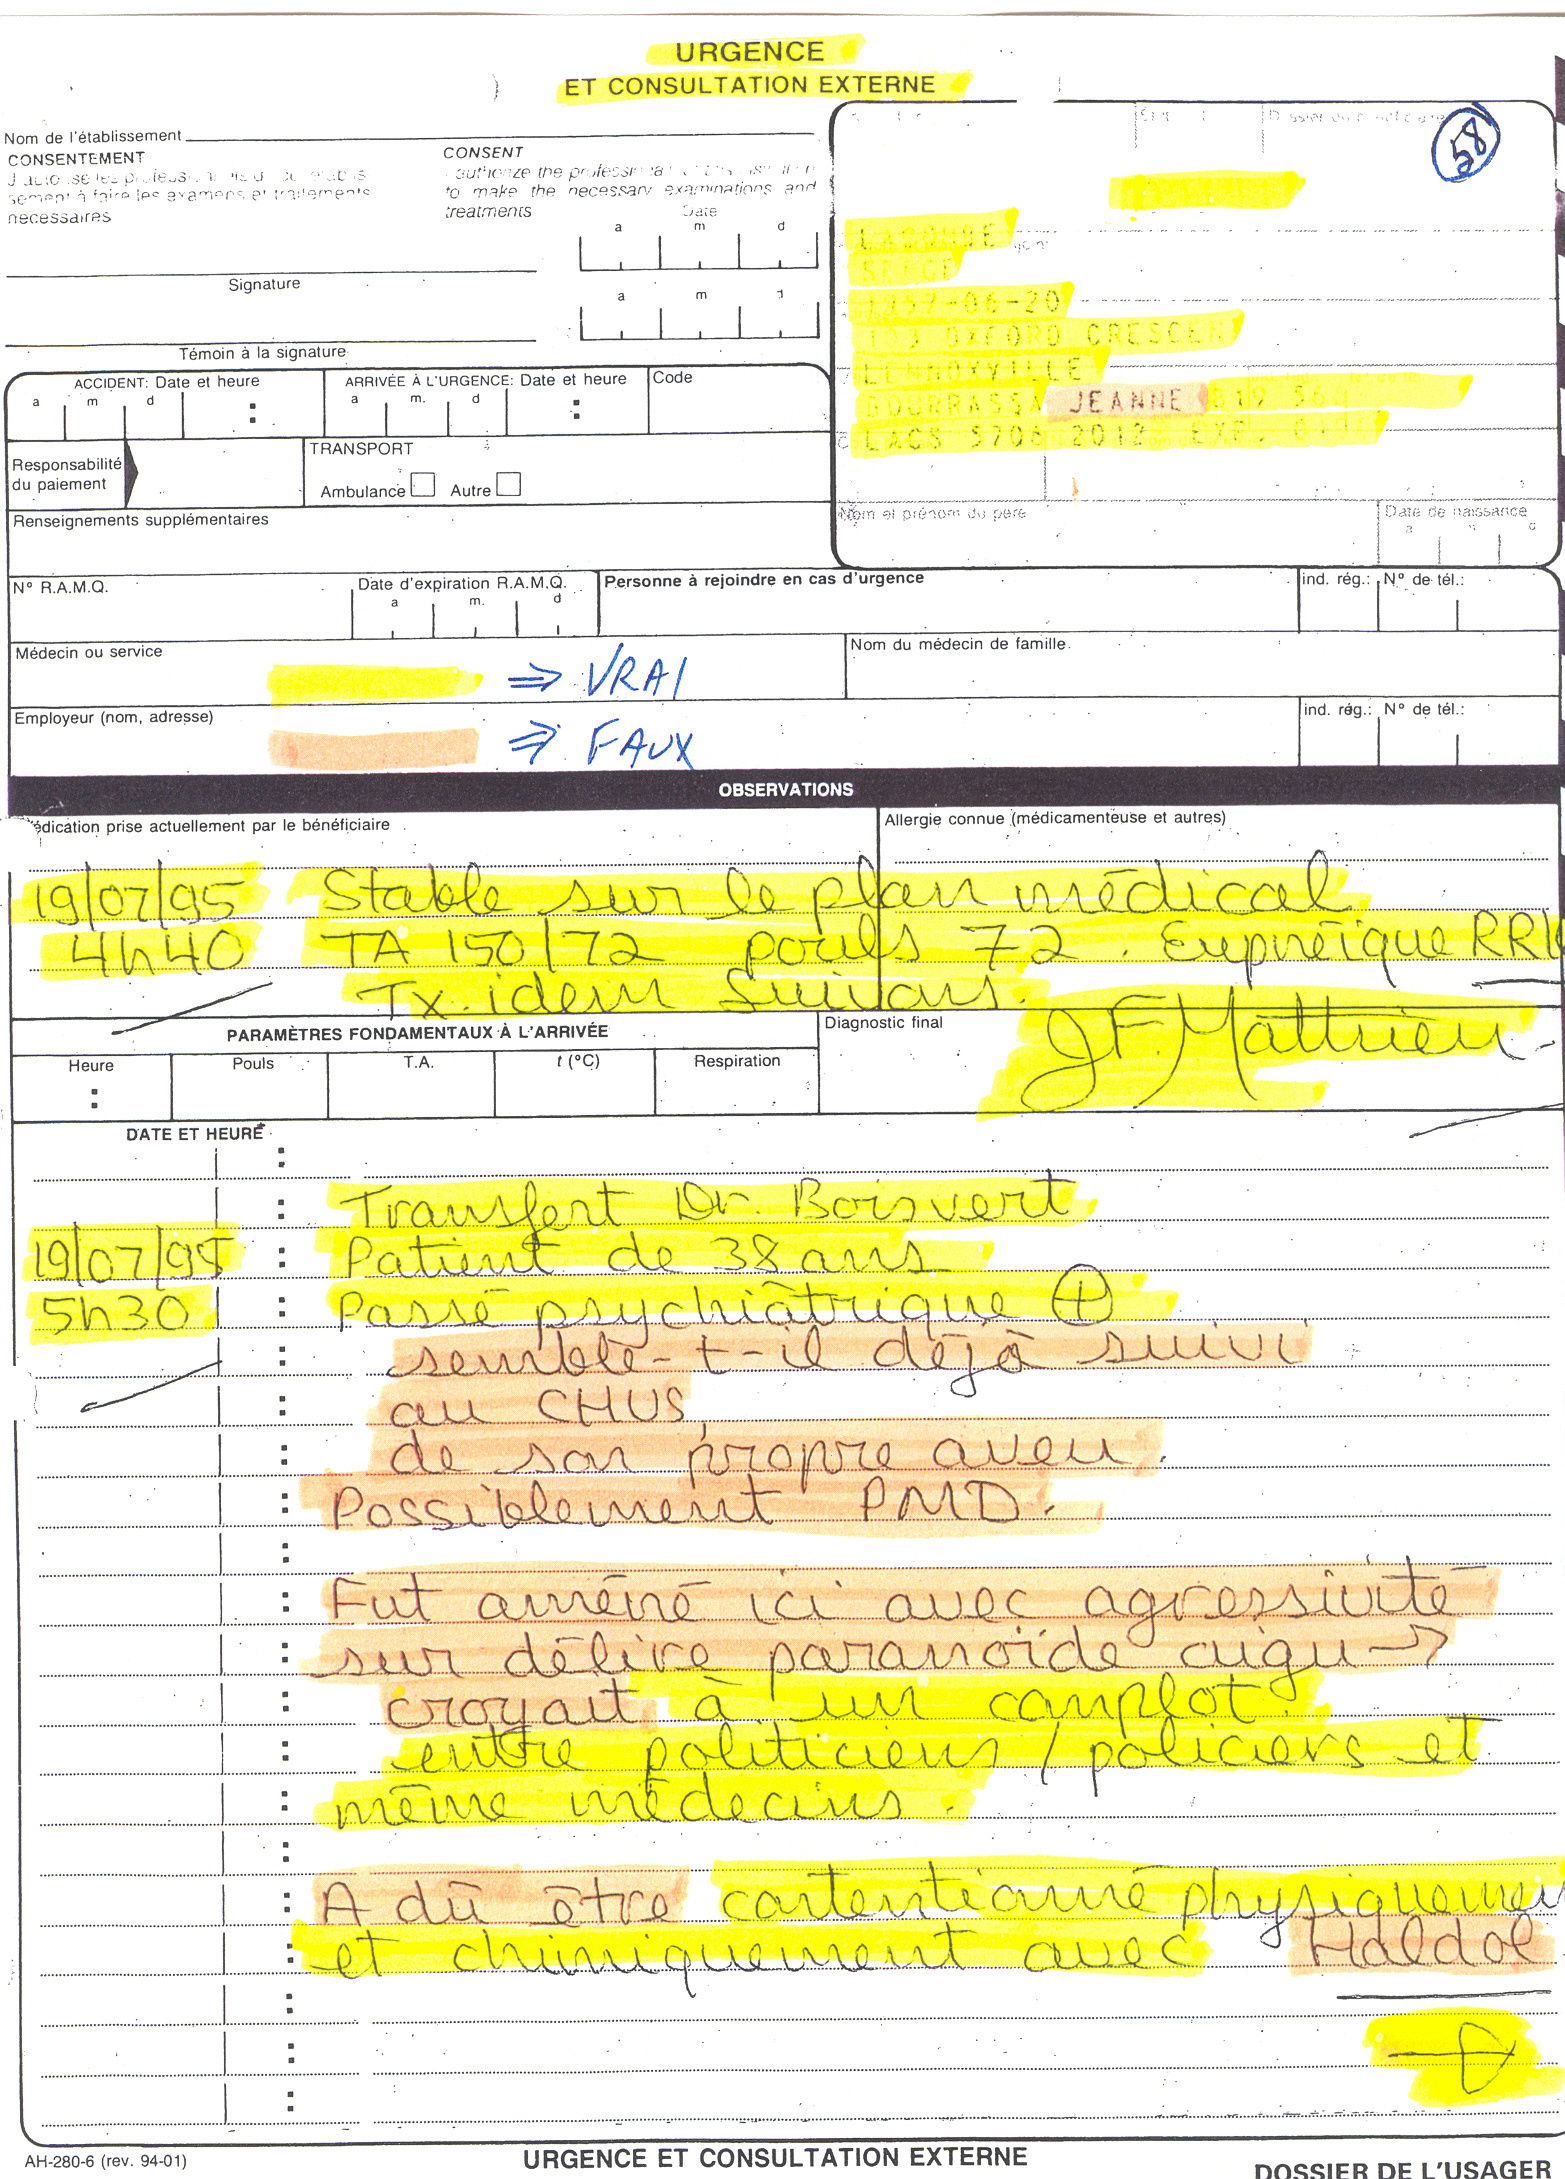 URGENCE
ET CONSULTATION EXTERNE
58
Nom de l'établissement
CONSENTEMENT
sement à faire les examens et traitements
necessaires
CONSENT
to make the necessary examinations and
treatments
Date
a m d
Signature
a m d
Témoin à la signature
LACOMBE
SERGE
1957-06-20
OXFORD CRESCENT
LENNOXVILLE
BOURRASSA JEANNE 819 56
LACS 5706 2012 EXP.
Nom et prénom du père
Date de naissance
ACCIDENT: Date et heure
a m d :
ARRIVÉE À L'URGENCE: Date et heure
a m. d :
Code
Responsabilité
du paiement
TRANSPORT
Ambulance Autre
Renseignements supplémentaires
N° R.A.M.Q.
Date d'expiration R.A.M.Q.
a m. d
Personne à rejoindre en cas d'urgence
ind. rég.: N° de tél.:
Médecin ou service
⇒ VRAI
Nom du médecin de famille.
Employeur (nom, adresse)
⇒ FAUX
ind. rég.: N° de tél.:
OBSERVATIONS
édication prise actuellement par le bénéficiaire
Allergie connue (médicamenteuse et autres)
19/07/95 Stable sur le plan médical
4h40 TA 150/72 pouls 72. Eupnéique
Tx. idem Suivons.
JF Mathieu
PARAMÈTRES FONDAMENTAUX À L'ARRIVÉE
Diagnostic final
Heure Pouls T.A. t (°C) Respiration
DATE ET HEURE
Transfert Dr. Boisvert
19/07/95 Patient de 38 ans
5h30 Passé psychiâtrique ⊕
semble-t-il déjà suivi
au CHUS
de son propre aveu.
Possiblement PMD.
Fut améné ici avec agressivité
sur délire paranoïde aigu →
croyait à un complot
entre politiciens / policiers et
même médecins.
A dû être contentionné physiquemen
et chimiquement avec Haldol
AH-280-6 (rev. 94-01)
URGENCE ET CONSULTATION EXTERNE
DOSSIER DE L'USAGER